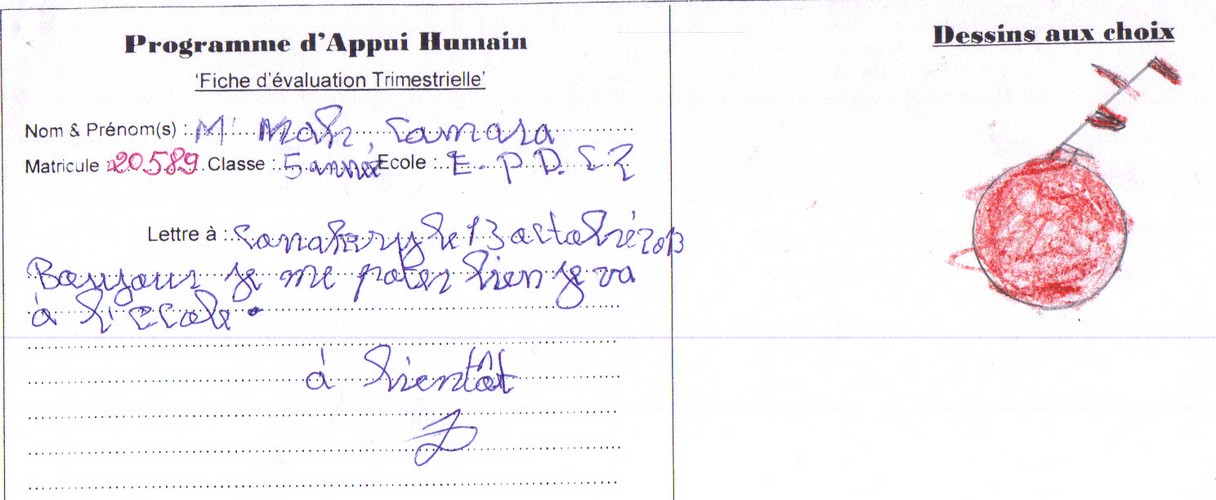 Programme d'Appui Humain
'Fiche d'évaluation Trimestrielle'
Nom & Prénom(s) : M' Mah, Camara
Matricule 20589 Classe : 5 année Ecole : E. P. D.
Lettre à : Conakry le 13 octobre 2013
Boujour je me poter bien je va
à l'école.
à bientôt
Dessins aux choix